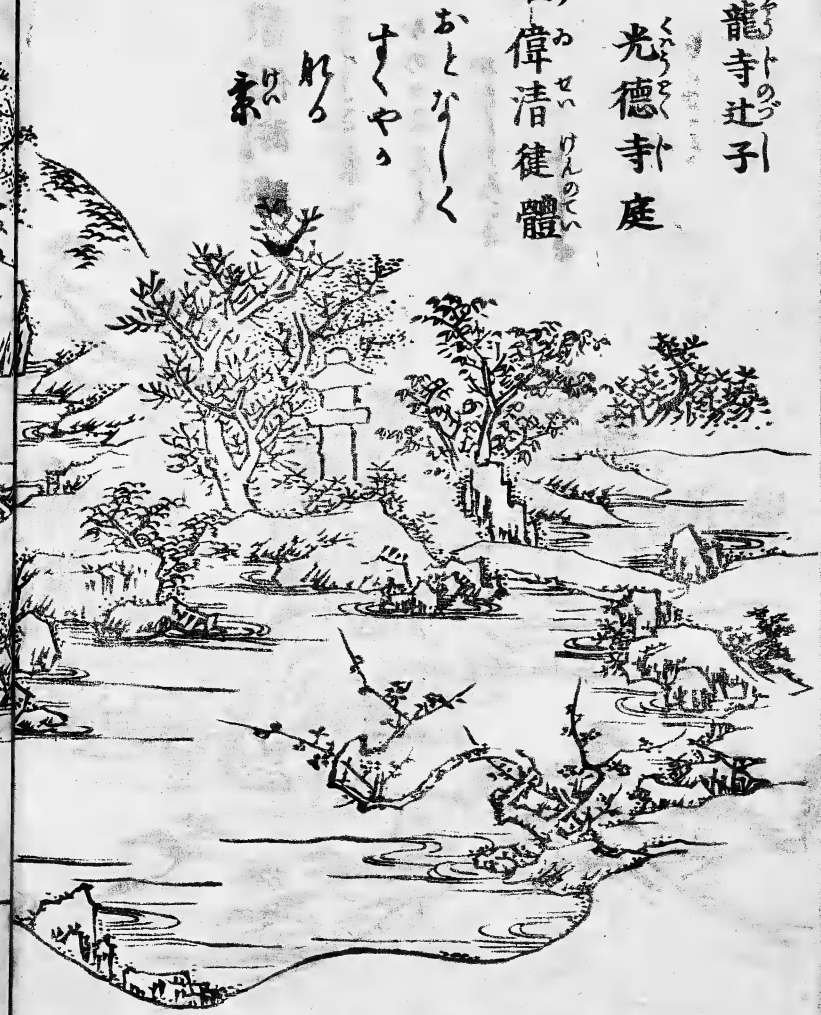 龍寺辻子
光德寺庭
偉清健體
おとなしく
すくやか
なる
景